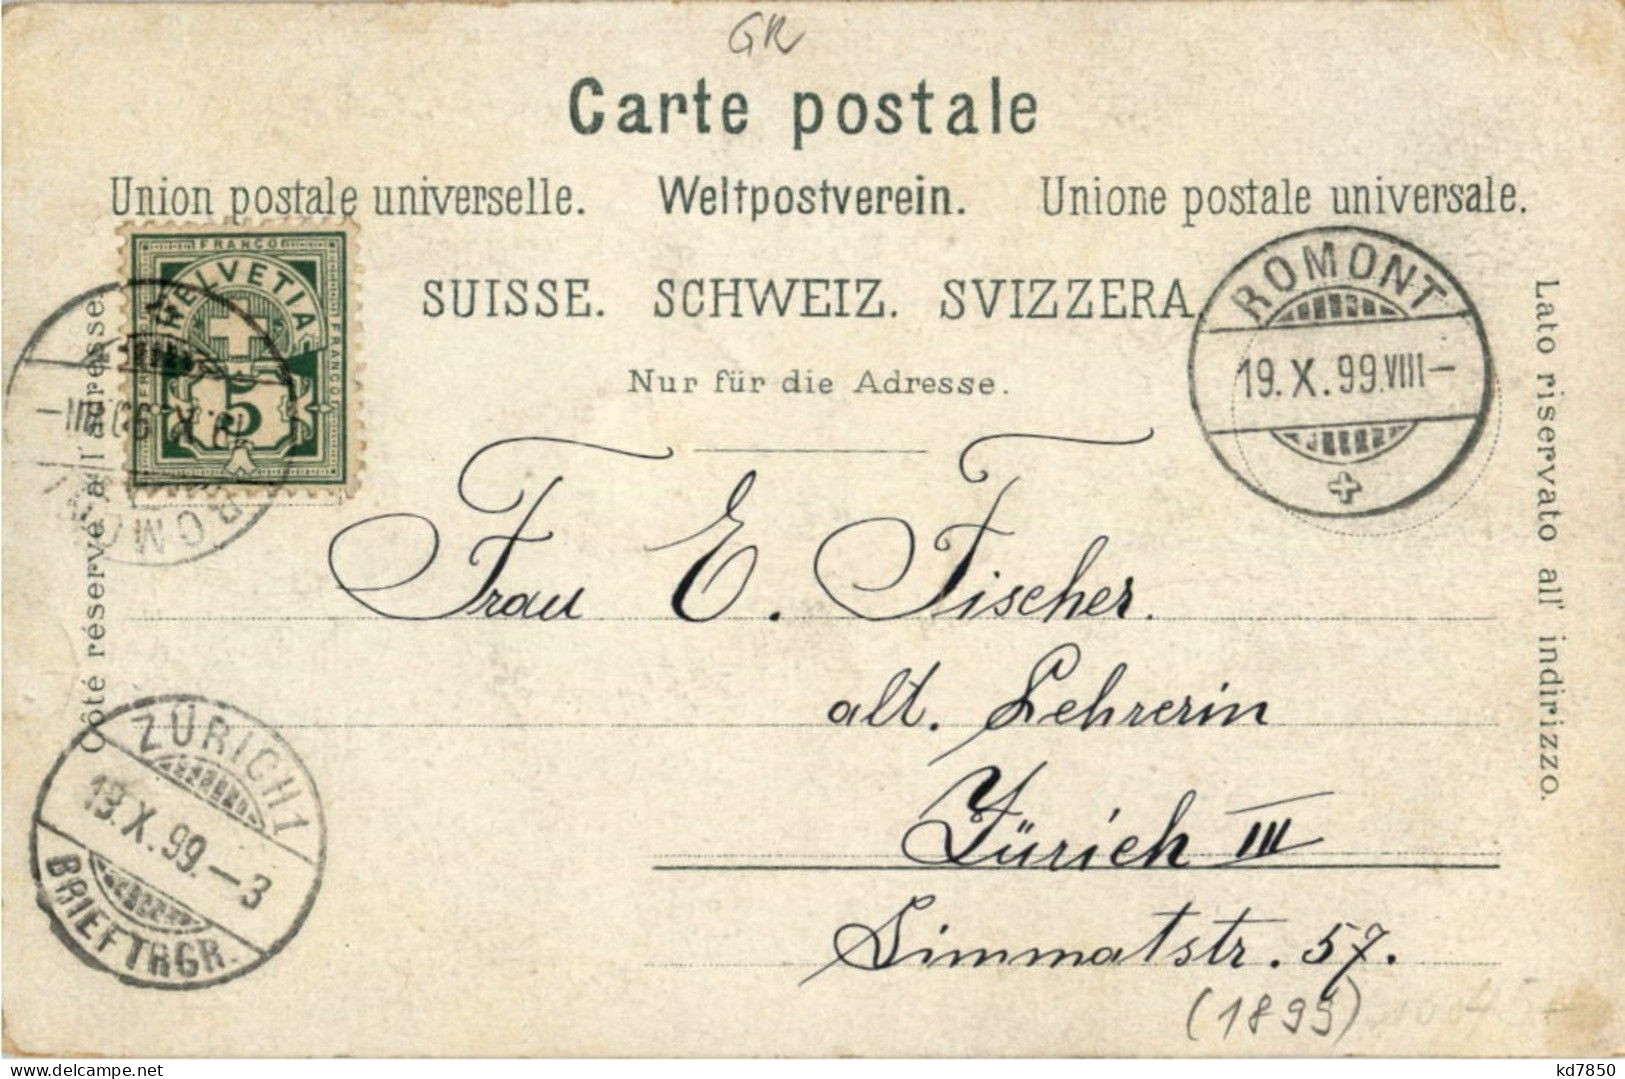 GR
Carte postale
Union postale universelle. Weltpostverein. Unione postale universale.
SUISSE. SCHWEIZ. SVIZZERA.
Nur für die Adresse.
FRANCO
HELVETIA
FRANCO
5
ROMONT
19.X.99.VIII-
Côté réservé à l'adresse.
Lato riservato all' indirizzo.
Frau E. Fischer.
alt. Lehrerin
Zürich III
Limmatstr. 57.
(1899)
ZÜRICH 1
19.X.99.-3
BRIEFTRGR.
kd7850